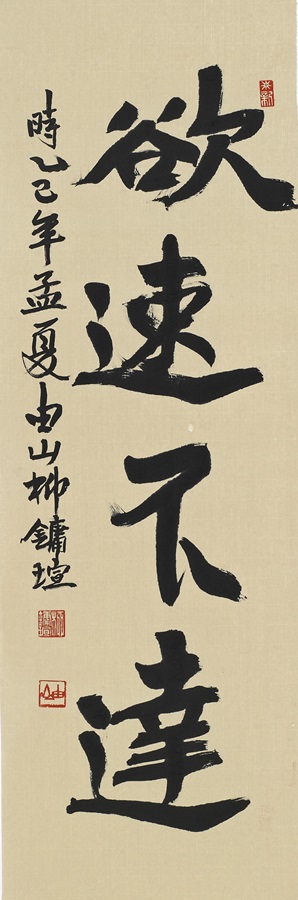 欲速不達
時乙巳年孟夏由山柳鏞瑄